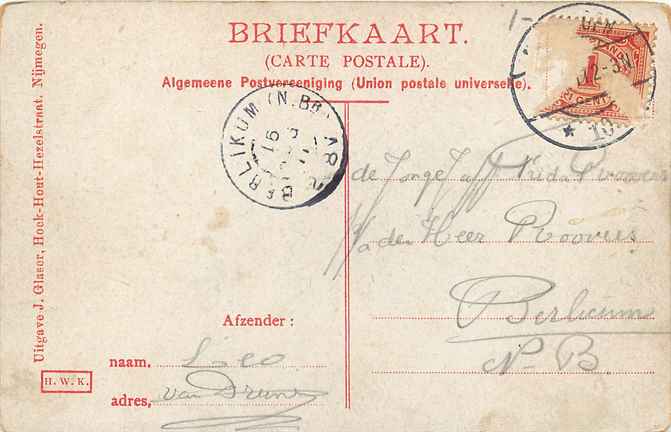 BRIEFKAART.
(CARTE POSTALE).
Algemeene Postvereeniging (Union postale universelle).
Uitgave J. Glaser, Hoek-Hout-Hezelstraat. Nijmegen.
H. W. K.
BERLIKUM (N.BR)
1
CENT
2-3N
de Jonge Prida Roovers
de Heer Roovers
Berlicum
N-B
Afzender:
naam, Leo
adres, van Drunen